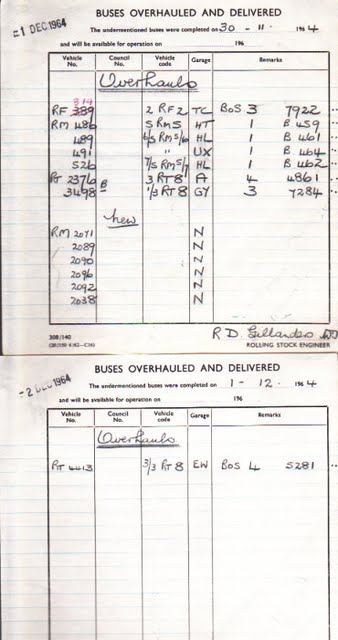 21 DEC 1964
BUSES OVERHAULED AND DELIVERED
The undermentioned buses were completed on 30 - 11 - 1964
and will be available for operation on 196
Vehicle No. Council No. Vehicle code Garage Remarks
Overhauls
314
RF 389 2 RF2 TC BOS 3 7922
RM 486 5 RM5 HT 1 B 459
489 6/5 RM5/6 HL 1 B 461
491 " UX 1 B 464
526 7/5 RM5/7 HL 1 B 462
RT 2376 3 RT8 A 4 4861
3498 B 1/3 RT8 GY 3 7284
New
RM 2071 N
2089 N
2090 N
2096 N
2092 N
2038 N
308/140
R D.
ROLLING STOCK ENGINEER
-2 DEC 1964
BUSES OVERHAULED AND DELIVERED
The undermentioned buses were completed on 1 - 12 - 1964
and will be available for operation on 196
Vehicle No. Council No. Vehicle code Garage Remarks
Overhauls
RT 4413 3/3 RT 8 EW BOS 4 5281